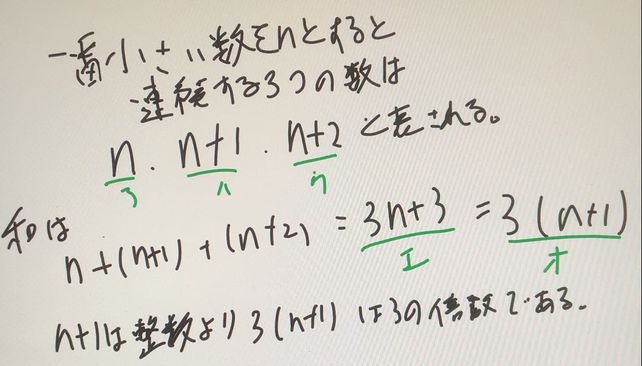 一番小さい数をnとすると
連続する3つの数は
n . n+1 . n+2 と表される。
ウ
和は n+(n+1)+(n+2) = 3n+3 = 3(n+1)
エ オ
n+1は整数より 3(n+1) は3の倍数である。